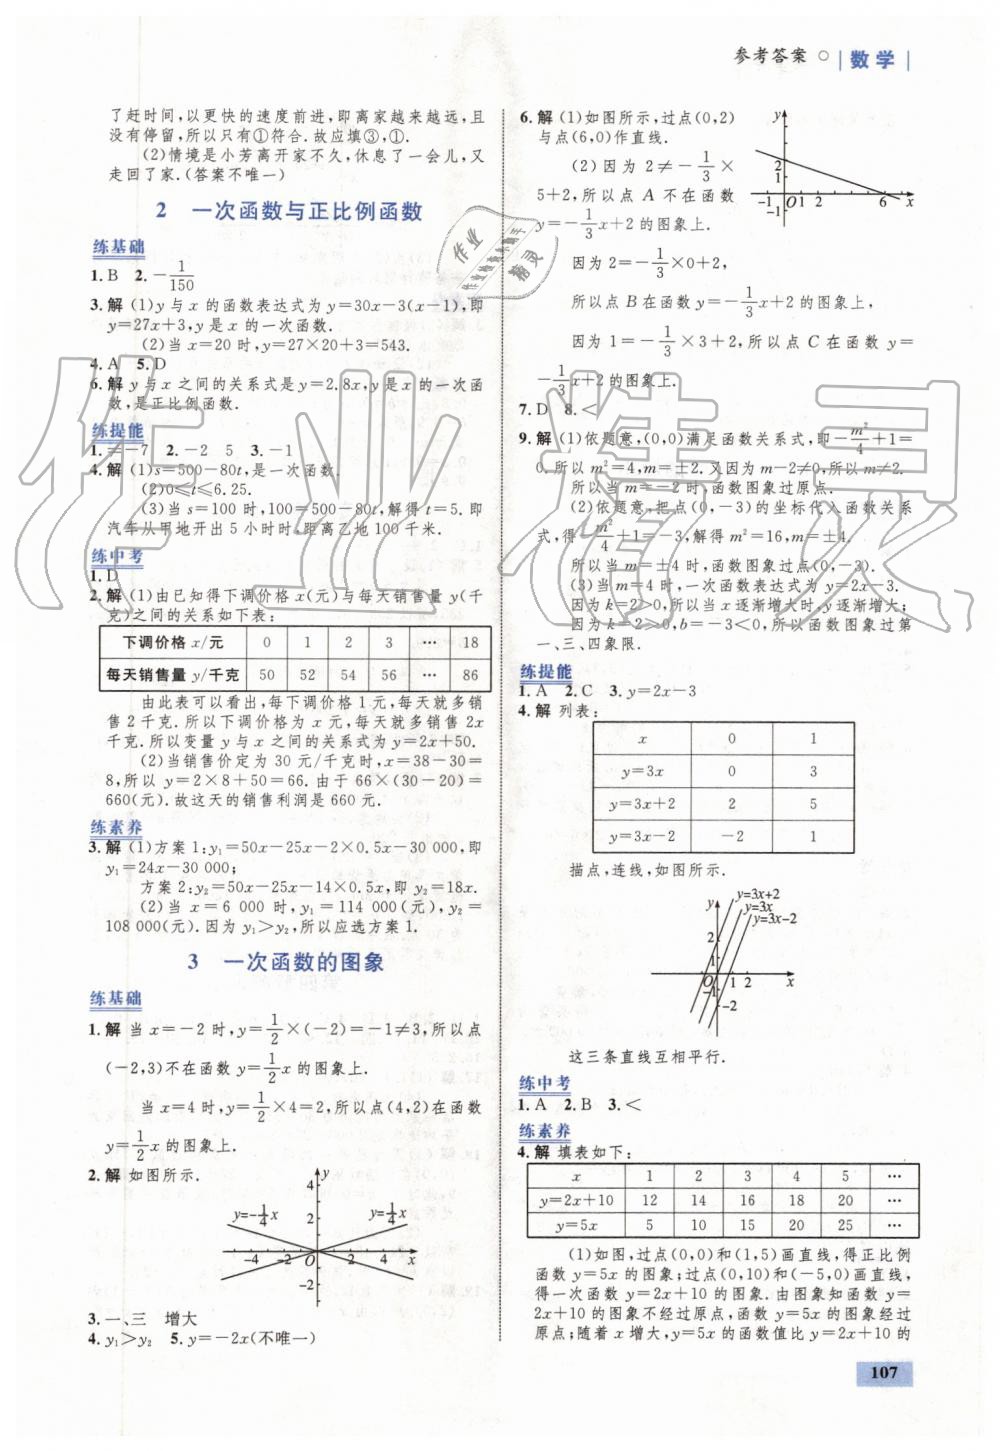 参考答案 ○ 数学
了赶时间,以更快的速度前进,即离家越来越远,且
没有停留,所以只有①符合.故应填③,①.
(2)情境是小芳离开家不久,休息了一会儿,又
走回了家.(答案不唯一)
2 一次函数与正比例函数
练基础
1. B 2. −1/150
3. 解 (1)y与x的函数表达式为y=30x−3(x−1),即
y=27x+3,y是x的一次函数.
(2)当x=20时,y=27×20+3=543.
4. A 5. D
6. 解 y与x之间的关系式是y=2.8x,y是x的一次函
数,是正比例函数.
练提能
1. =−7 2. −2 5 3. −1
4. 解 (1)s=500−80t,是一次函数.
(2)0≤t≤6.25.
(3)当s=100时,100=500−80t,解得t=5.即
汽车从甲地开出5小时时,距离乙地100千米.
练中考
1. D
2. 解 (1)由已知得下调价格x(元)与每天销售量y(千
克)之间的关系如下表:
下调价格x/元 0 1 2 3 … 18
每天销售量y/千克 50 52 54 56 … 86
由此表可以看出,每下调价格1元,每天就多销
售2千克.所以下调价格为x元,每天就多销售2x
千克.所以变量y与x之间的关系式为y=2x+50.
(2)当销售价定为30元/千克时,x=38−30=
8,所以y=2×8+50=66.由于66×(30−20)=
660(元).故这天的销售利润是660元.
练素养
3. 解 (1)方案1:y₁=50x−25x−2×0.5x−30 000,即
y₁=24x−30 000;
方案2:y₂=50x−25x−14×0.5x,即y₂=18x.
(2)当x=6 000时,y₁=114 000(元),y₂=
108 000(元).因为y₁>y₂,所以应选方案1.
3 一次函数的图象
练基础
1. 解 当x=−2时,y=1/2×(−2)=−1≠3,所以点
(−2,3)不在函数y=1/2x的图象上.
当x=4时,y=1/2×4=2,所以点(4,2)在函数
y=1/2x的图象上.
2. 解 如图所示.
y
4
y=−1/4x y=1/4x
2
−4 −2 O 2 4 x
−2
3. 一、三 增大
4. y₁>y₂ 5. y=−2x(不唯一)
6. 解 (1)如图所示,过点(0,2)
与点(6,0)作直线.
y
2
1
−1 O 1 2 6 x
−1
(2)因为2≠−1/3×
5+2,所以点A不在函数
y=−1/3x+2的图象上.
因为2=−1/3×0+2,
所以点B在函数y=−1/3x+2的图象上,
因为1=−1/3×3+2,所以点C在函数y=
−1/3x+2的图象上.
7. D 8. <
9. 解 (1)依题意,(0,0)满足函数关系式,即−m²/4+1=
0.所以m²=4,m=±2.又因为m−2≠0,所以m≠2.
所以当m=−2时,函数图象过原点.
(2)依题意,把点(0,−3)的坐标代入函数关系
式,得−m²/4+1=−3,解得m²=16,m=±4.
所以当m=±4时,函数图象过点(0,−3).
(3)当m=4时,一次函数表达式为y=2x−3.
因为k=2>0,所以当x逐渐增大时,y逐渐增大;
因为k=2>0,b=−3<0,所以函数图象过第
一、三、四象限.
练提能
1. A 2. C 3. y=2x−3
4. 解 列表:
x 0 1
y=3x 0 3
y=3x+2 2 5
y=3x−2 −2 1
描点,连线,如图所示.
y y=3x+2
y=3x
y=3x−2
2
1
O 1 2 x
−1
−2
这三条直线互相平行.
练中考
1. A 2. B 3. <
练素养
4. 解 填表如下:
x 1 2 3 4 5 …
y=2x+10 12 14 16 18 20 …
y=5x 5 10 15 20 25 …
(1)如图,过点(0,0)和(1,5)画直线,得正比例
函数y=5x的图象;过点(0,10)和(−5,0)画直线,
得一次函数y=2x+10的图象.由图象知函数y=
2x+10的图象不经过原点,函数y=5x的图象经过
原点;随着x增大,y=5x的函数值比y=2x+10的
107
作业精灵